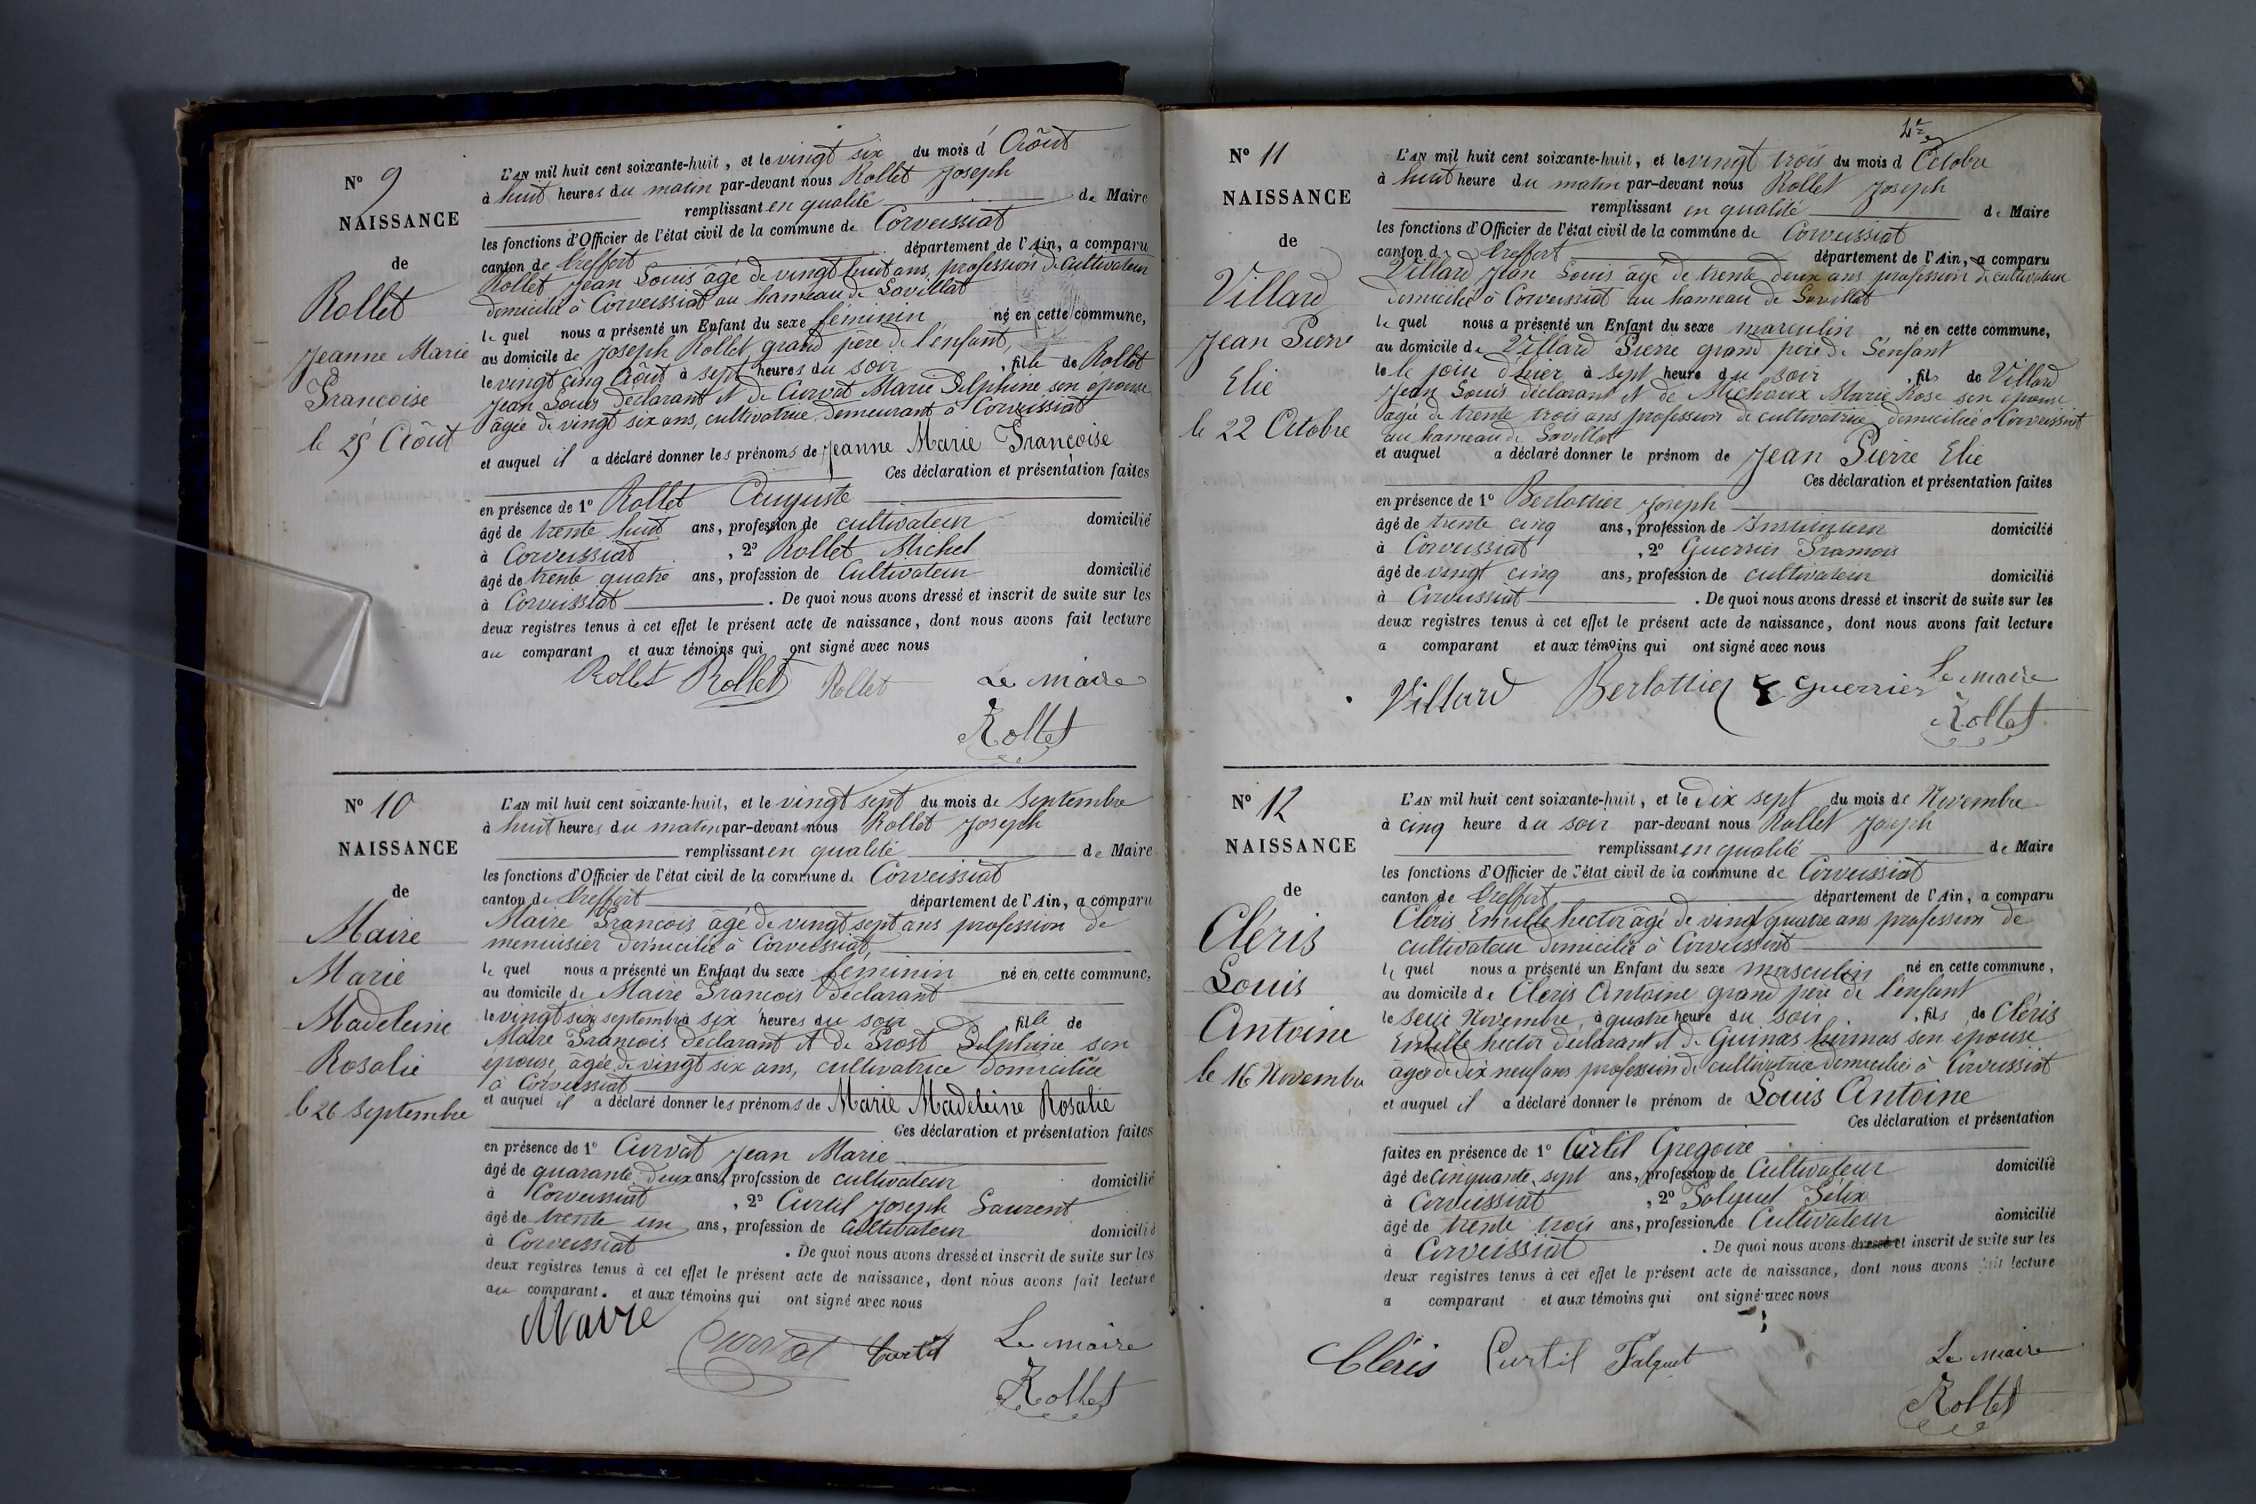 N° 9
NAISSANCE
de
Rollet
Jeanne Marie
Françoise
le 25 Aôut
L'AN mil huit cent soixante-huit, et le vingt six du mois d'Aôut
à huit heures du matin par-devant nous Rollet Joseph
remplissant en qualité de Maire
les fonctions d'Officier de l'état civil de la commune de Corveissiat
canton de Treffort département de l'Ain, a comparu
Rollet Jean Louis âgé de vingt huit ans, profession de cultivateur
domicilié à Corveissiat au hameau de Lavillat
le quel nous a présenté un Enfant du sexe féminin né en cette commune,
au domicile de Joseph Rollet grand père de l'enfant,
le vingt cinq Aôut à sept heures du soir, fille de Rollet
Jean Louis déclarant et de Curvat Marie Delphine son épouse
âgée de vingt six ans, cultivatrice demeurant à Corveissiat
et auquel il a déclaré donner les prénoms de Jeanne Marie Françoise
Ces déclaration et présentation faites
en présence de 1° Rollet Auguste
âgé de trente huit ans, profession de cultivateur domicilié
à Corveissiat, 2° Rollet Michel
âgé de trente quatre ans, profession de Cultivateur domicilié
à Corveissiat. De quoi nous avons dressé et inscrit de suite sur les
deux registres tenus à cet effet le présent acte de naissance, dont nous avons fait lecture
au comparant et aux témoins qui ont signé avec nous
Rollet Rollet Rollet Le maire
Rollet
N° 10
NAISSANCE
de
Maire
Marie
Madeleine
Rosalie
le 26 Septembre
L'AN mil huit cent soixante-huit, et le vingt sept du mois de Septembre
à huit heures du matin par-devant nous Rollet Joseph
remplissant en qualité de Maire
les fonctions d'Officier de l'état civil de la commune de Corveissiat
canton de Treffort département de l'Ain, a comparu
Maire François âgé de vingt sept ans profession de
menuisier domicilié à Corveissiat,
le quel nous a présenté un Enfant du sexe féminin né en cette commune,
au domicile de Maire François déclarant
le vingt six septembre à six heures du soir, fille de
Maire François déclarant et de Prost Delphine son
épouse, âgée de vingt six ans, cultivatrice domiciliée
à Corveissiat
et auquel il a déclaré donner les prénoms de Marie Madeleine Rosalie
Ces déclaration et présentation faites
en présence de 1° Curvat Jean Marie
âgé de quarante deux ans, profession de cultivateur domicilié
à Corveissiat, 2° Curtil Joseph Laurent
âgé de trente un ans, profession de Cultivateur domicilié
à Corveissiat. De quoi nous avons dressé et inscrit de suite sur les
deux registres tenus à cet effet le présent acte de naissance, dont nous avons fait lecture
au comparant. et aux témoins qui ont signé avec nous
Maire Curvat Curtil Le maire
Rollet
N° 11
NAISSANCE
de
Villard
Jean Pierre
Elie
le 22 Octobre
L'AN mil huit cent soixante-huit, et le vingt trois du mois d Octobre
à huit heure du matin par-devant nous Rollet Joseph
remplissant en qualité de Maire
les fonctions d'Officier de l'état civil de la commune de Corveissiat
canton de Treffort département de l'Ain, a comparu
Villard Jean Louis âgé de trente deux ans profession de cultivateur
domicilié à Corveissiat au hameau de Lavillat
le quel nous a présenté un Enfant du sexe masculin né en cette commune,
au domicile de Villard Pierre grand père de l'enfant
le le jour d'hier à sept heure du soir, fils de Villard
Jean Louis déclarant et de Michaux Marie Rose son épouse
âgée de trente trois ans profession de cultivatrice domiciliée à Corveissiat
au hameau de Lavillat
et auquel a déclaré donner le prénom de Jean Pierre Elie
Ces déclaration et présentation faites
en présence de 1° Berlottier Joseph
âgé de trente cinq ans, profession de Instituteur domicilié
à Corveissiat, 2° Guerrier François
âgé de vingt cinq ans, profession de cultivateur domicilié
à Corveissiat. De quoi nous avons dressé et inscrit de suite sur les
deux registres tenus à cet effet le présent acte de naissance, dont nous avons fait lecture
a comparant et aux témoins qui ont signé avec nous
Villard Berlottier Guerrier Le maire
Rollet
N° 12
NAISSANCE
de
Cléris
Louis
Antoine
le 16 Novembre
L'AN mil huit cent soixante-huit, et le Dix sept du mois de Novembre
à cinq heure du soir par-devant nous Rollet Joseph
remplissant en qualité de Maire
les fonctions d'Officier de l'état civil de la commune de Corveissiat
canton de Treffort département de l'Ain, a comparu
Cléris Emille hector âgé de vingt quatre ans profession de
cultivateur domicilié à Corveissiat
le quel nous a présenté un Enfant du sexe masculin né en cette commune,
au domicile de Cléris Antoine grand père de l'enfant
le seize Novembre, à quatre heure du soir, fils de Cléris
Emille hector déclarant et de Guinas son épouse
âgée de dix neuf ans profession de cultivatrice domiciliée à Corveissiat
et auquel il a déclaré donner le prénom de Louis Antoine
Ces déclaration et présentation
faites en présence de 1° Curtil Gregoire
âgé de cinquante sept ans, profession de Cultivateur domicilié
à Corveissiat, 2° Falquet Félix
âgé de trente trois ans, profession de Cultivateur domicilié
à Corveissiat. De quoi nous avons dressé et inscrit de suite sur les
deux registres tenus à cet effet le présent acte de naissance, dont nous avons fait lecture
a comparant et aux témoins qui ont signé avec nous
Cléris Curtil Falquet Le maire
Rollet